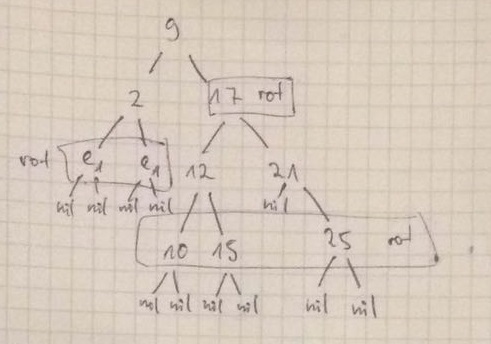 9
2 17 rot
rot e₁ e₁ 12 21
nil nil nil nil nil
10 15 25 rot
nil nil nil nil nil nil